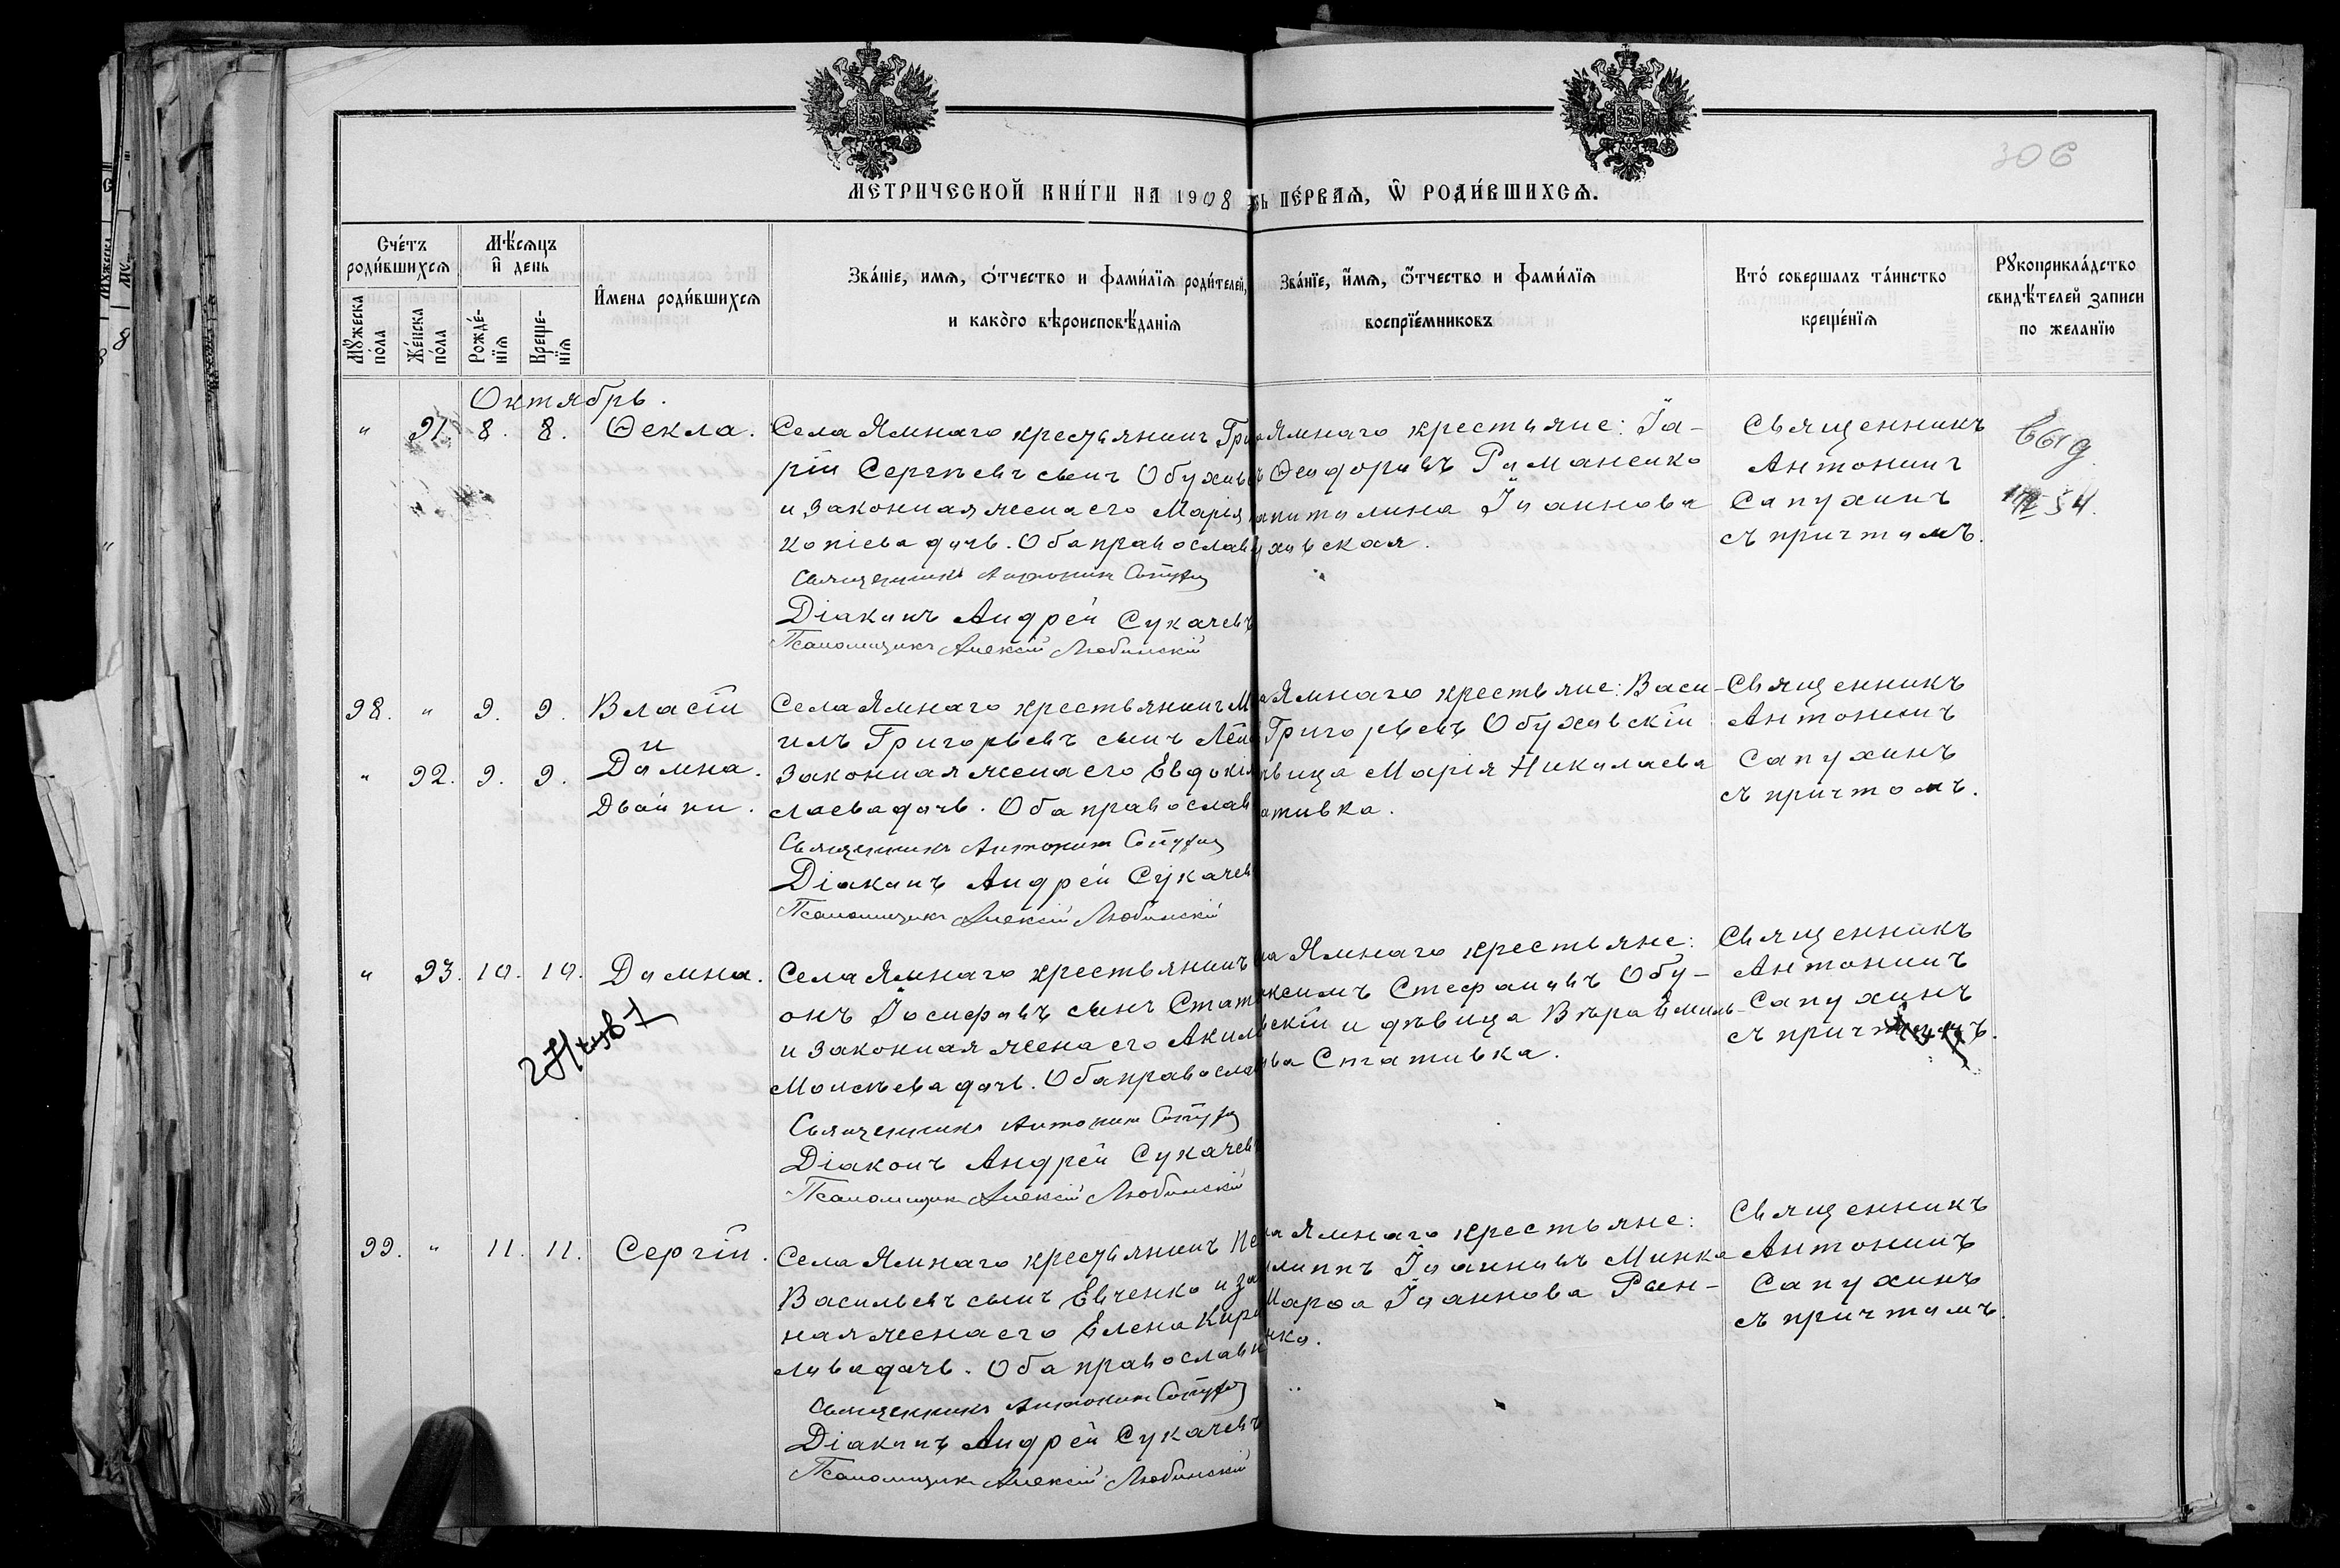 306
МЕТРИЧЕСКОЙ КНИ́ГИ НА 1908
ть ПЕ́РВАѦ, Ѡ РОДИ́ВШИХСѦ.
Сче́тъ родившихсѧ
Мꙋжеска по́ла
Же́нска по́ла
Мѣ́сѧцъ и день
Рожде́нїѧ
Креще́нїѧ
Имена роди́вшихсѧ
Зва́нїе, имѧ, о́тчество и фами́лїѧ роди́телей,
и како́го вѣроисповѣ́данїѧ
Зва́нїе, и́мѧ, о́тчество и фами́лїѧ
воспрїе́мниковъ
Кто́ совершалъ та́инство
креще́нїѧ
Рꙋкоприкла́дство
свидѣ́телей записи
по желанїю
Октябрь.
" 91. 8. 8. Ѳекла.
Села Ямнаго крестьянинъ Гри
рій Сергѣевъ сынъ Обухов
и законная жена его Марія
копіева дочь. Оба православ
Священникъ Антонин Сапухин
Діаконъ Андрей Сукачевъ
Псаломщикъ Алексій Любинскій
а Ямнаго крестьяне: Іо-
ъ Ѳеодоровъ Романенко
апитолина Іоаннова
уховская.
Священникъ
Антонинъ
Сапухинъ
съ причтомъ.
выд
54.
98. " 9. 9. Власій
и
" 92. 9. 9. Домна.
Двойни.
Села Ямнаго крестьянинъ М
илъ Григорьевъ сынъ
законная жена его Евдокія
лаева дочь. Оба православ
Священникъ Антонин Сапухин
Діаконъ Андрей Сукачев
Псаломщикъ Алексій Любинскій
а Ямнаго крестьяне: Васи-
Григорьевъ Обуховскій
вица Марія Николаева
ативка.
Священникъ
Антонинъ
Сапухинъ
съ причтомъ.
" 93. 10. 10. Домна.
Села Ямнаго крестьянинъ
онъ Іосифовъ сынъ Стат
и законная жена его Акил
Моисѣева дочь. Оба правосла
Священникъ Антонин Сапухин
Діаконъ Андрей Сукачев
Псаломщикъ Алексій Любинскій
а Ямнаго крестьяне:
ксимъ Стефановъ Обу-
вскій и дѣвица Вѣра
ва Стативка.
Священникъ
Антонинъ
Сапухинъ
съ причтомъ.
99. " 11. 11. Сергій.
Села Ямнаго крестьянинъ Пе
Васильевъ сынъ Евченко и за
ная жена его Елена Кири
лова дочь. Оба православн
Священникъ Антонин Сапухин
Діаконъ Андрей Сукачевъ
Псаломщикъ Алексій Любинскій
а Ямнаго крестьяне:
илиппъ Іоанновъ Минка
Марѳа Іоаннова Рын-
нка.
Священникъ
Антонинъ
Сапухинъ
съ причтомъ.